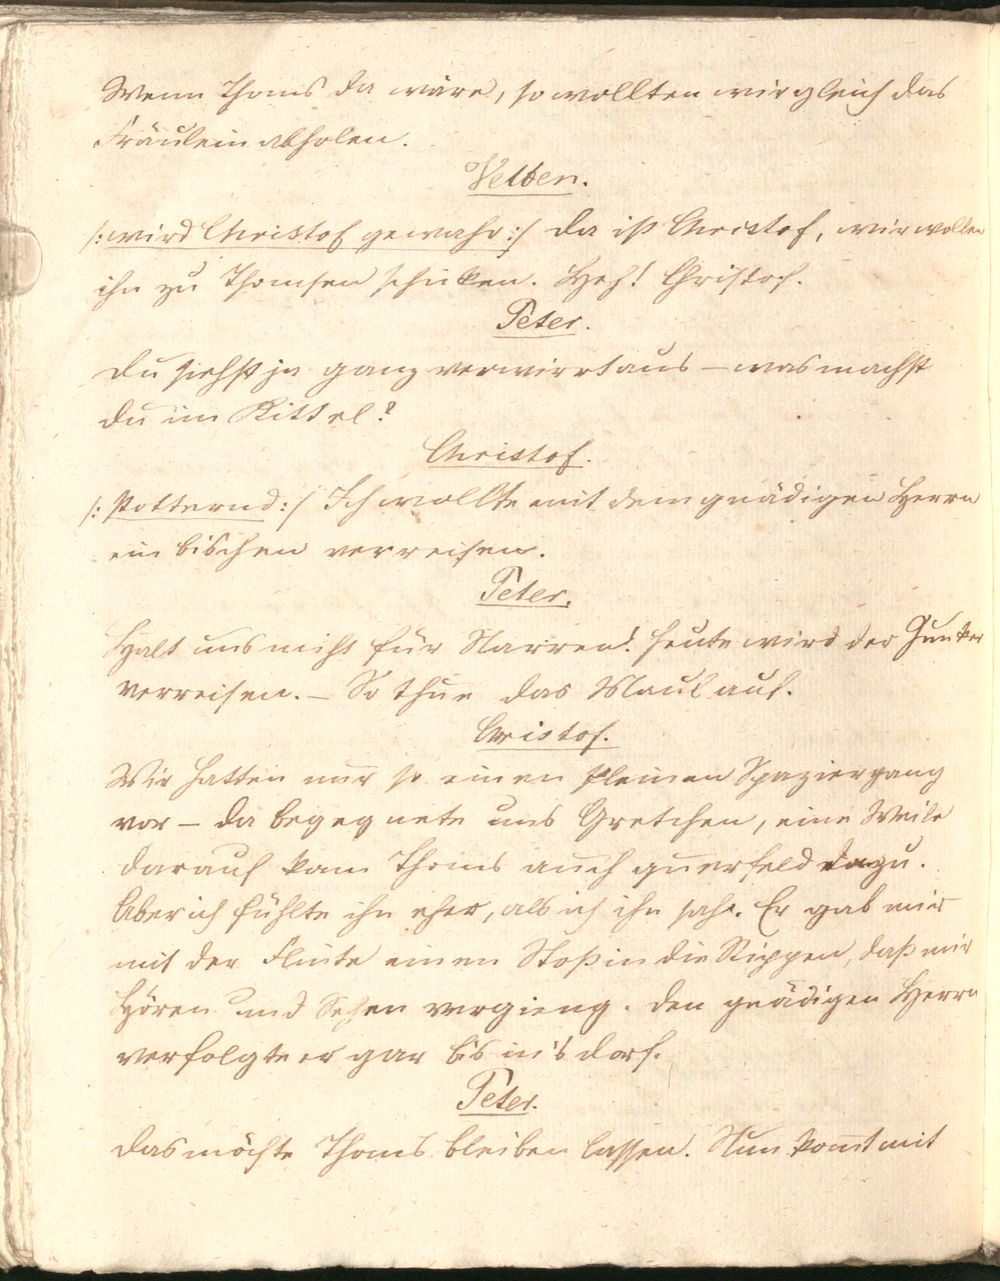 Wenn Thoms da wäre, so wollten wir gleich das
Fräulein abholen.
Velten.
/: wird Christof gewahr :/ Da ist Christof, wir wollen
ihn zu Thomsen schicken. Heh! Christof.
Peter.
Du siehst ja ganz verwirrt aus – was machst
du im Kittel?
Christof.
/: stotternd :/ Ich wollte mit dem gnädigen Herrn
ein bischen verreisen.
Peter.
Halt uns nicht für Narren! heute wird der Junker
verreisen. – So thue das Maul auf.
Christof.
Wir hatten nur so einen kleinen Spaziergang
vor – da begegnete uns Gretchen, eine Weile
darauf kam Thoms auch querfeld dazu.
Aber ich fühlte ihn eher, als ich ihn sahe. Er gab mir
mit der Flinte einen Stoß in die Rippen, daß mir
Hören und Sehen vergieng. Den gnädigen Herrn
verfolgte er gar bis in's Dorf.
Peter.
Das möchte Thoms bleiben lassen. Nun komt mit